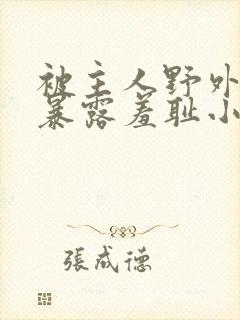 被主人野外
暴露羞耻小
張成德